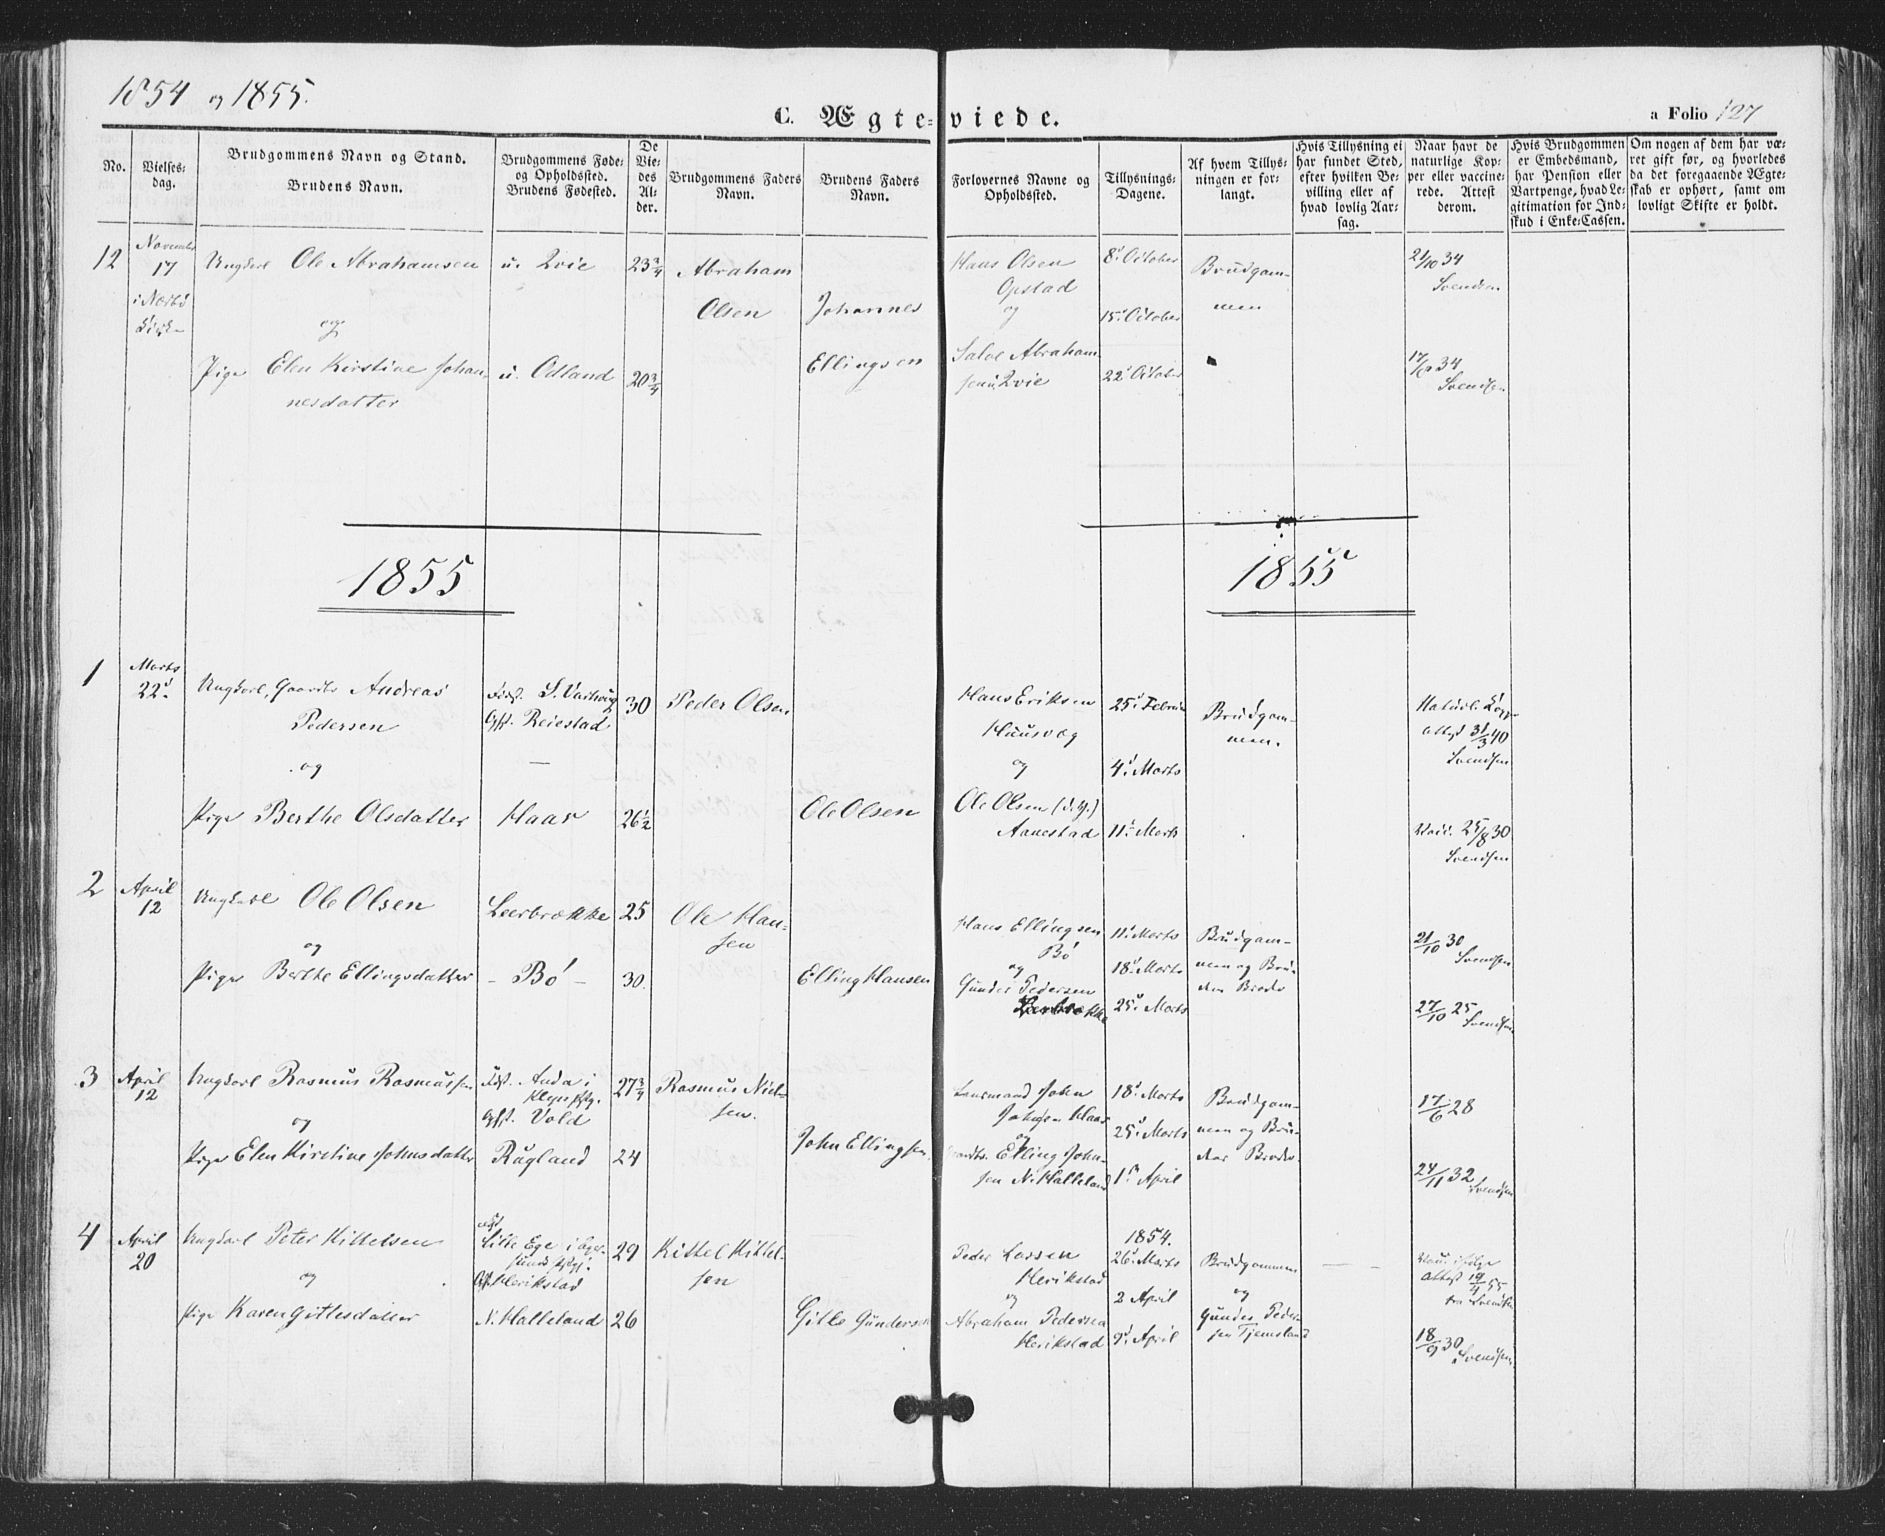 1854 og 1855.
C. Ægte=viede.
a Folio 127
No.
Vielses=
dag.
Brudgommens Navn og Stand.
Brudens Navn.
Brudgommens Føde=
og Opholdssted.
Brudens Fødested.
De
Vie=
des
Al=
der.
Brudgommens Faders
Navn.
Brudens Faders
Navn.
Forlovernes Navne og
Opholdssted.
Tillysnings=
Dagene.
Af hvem Tillys=
ningen er for=
langt.
Hvis Tillysning ei
har fundet Sted,
efter hvilken Be=
villing eller af
hvad lovlig Aar=
sag.
Naar havt de
naturlige Kop=
per eller vaccine=
rede. Attest
derom.
Hvis Brudgommen
er Embedsmand,
har Pension eller
Vartpenge, hvad Le=
gitimation for Ind=
skud i Enke=Cassen.
Om nogen af dem har væ=
ret gift før, og hvorledes
da det foregaaende Ægte=
skab er ophørt, samt om
lovligt Skifte er holdt.
12
November
17
i Nærbø
Kirke
Ungkarl Ole Abrahamsen
og
Pige Elen Kirstine Johan-
nesdatter
u. Qvie
u. Odland
23 3/4
20 3/4
Abraham
Olsen
Johannes
Ellingsen
Hans Olsen
Opstad
og
Saloe Abraham-
sen Qvie
8d October
15d October
22d October
Brudgom-
men
21/10 34
Svendsen
17/10 34
Svendsen
1855
1855
1
Marts
22d
Ungkarl, Gaardbr Andreas
Pedersen
og
Pige Berthe Olsdatter
Fødst. S. Varhoug
Opst. Reiestad
—
Haar
30
26 1/2
Peder Olsen
Ole Olsen
Hans Eriksen
Hausvæg
og
Ole Olsen (d. y.)
Aanestad
25d Februar
4d Marts
11d Marts
Brudgom-
men.
Naturl. Kopp.
Attest 31/3 40
Svendsen
Vacc. 25/8 30
Svendsen
2
April
12
Ungkarl Ole Olsen
og
Pige Berthe Ellingsdatter
Leerbrække
- Bø -
25
30.
Ole Han-
sen
Elling Hansen
Hans Ellingsen
Bø
og
Gunder Pedersen
Leerbrække
11d Marts
18d Marts
25d Marts
Brudgom-
men og Bru-
dens Broder
21/10 30
Svendsen
27/10 25
Svendsen
3
April
12
Ungkarl Rasmus Rasmussen
og
Pige Elen Kirstine Johnsdatter
Fdst. Anda i
Klep Pstg.
Opst. Vold
Rugland
27 3/4
24
Rasmus Niel-
sen.
John Ellingsen
Lensmand John
Johnsen Haar
og
Gaardbr. Elling John-
sen N. Halleland
18d Marts
25d Marts
1st April
Brudgom-
men og Bru-
dens Broder
17/6 28
24/11 32
Svendsen
4
April
20
Ungkarl Peter Kittelsen
og
Pige Karen Gitlesdatter
Fdst
Lille Ege i Eger-
sund Pstgj.
Opst. Herikstad
N. Halleland
29
26
Kittel Kittel-
sen
Gitle Gundersen
Peder Larsen
Herikstad
og
Abraham Pedersen
Herikstad
1854.
26d Marts
2 April
9d April
Brudgommen
og
Gunder Peder-
sen Tjemsland
Vacc. ifølge
Attest 19/4 55
fra Svendsen
18/9 30
Svendsen